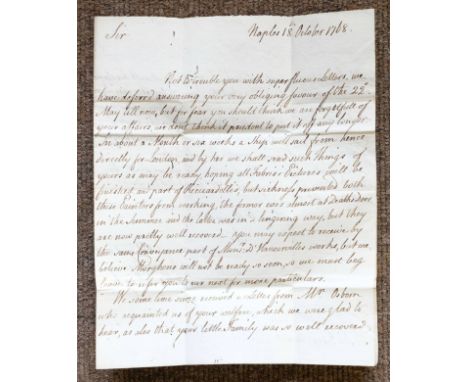 Sir
Naples 18th October 1768.
Not to trouble you with superfluous Letters, we
have deferr'd answering your very obliging favour of the 22d
May till now, but for fear you should think we are forgetfull of
your affairs we don't think it prudent to put it off any longer.
In about a Month or six weeks a Ship will sail from hence
directly for London and by her we shall send such things of
yours as may be ready hoping all Fabris's Pictures will be
finished and part of Ricciardellis, but sickness prevented both
these Painters from working, the former was almost at Deaths door
in the Summer and the latter was in a lingering way, but they
are now pretty well recoverd. You may expect to receive by
the same Conveyance part of Monsr. D'Hancarvilles works, but we
believe will not be ready so soon, so we must beg
leave to refer you to our next for more particulars.
We some time since received a Letter from Mr. Osborn
who acquainted us of your welfare, which we were glad to
hear, as also that your little Family was so well recovered